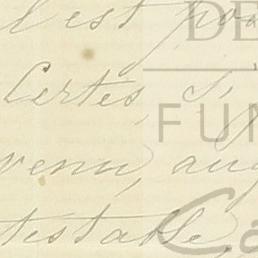 l est pou
DE
Certes, s'i
FUN
venu, aug
testable,
Ca